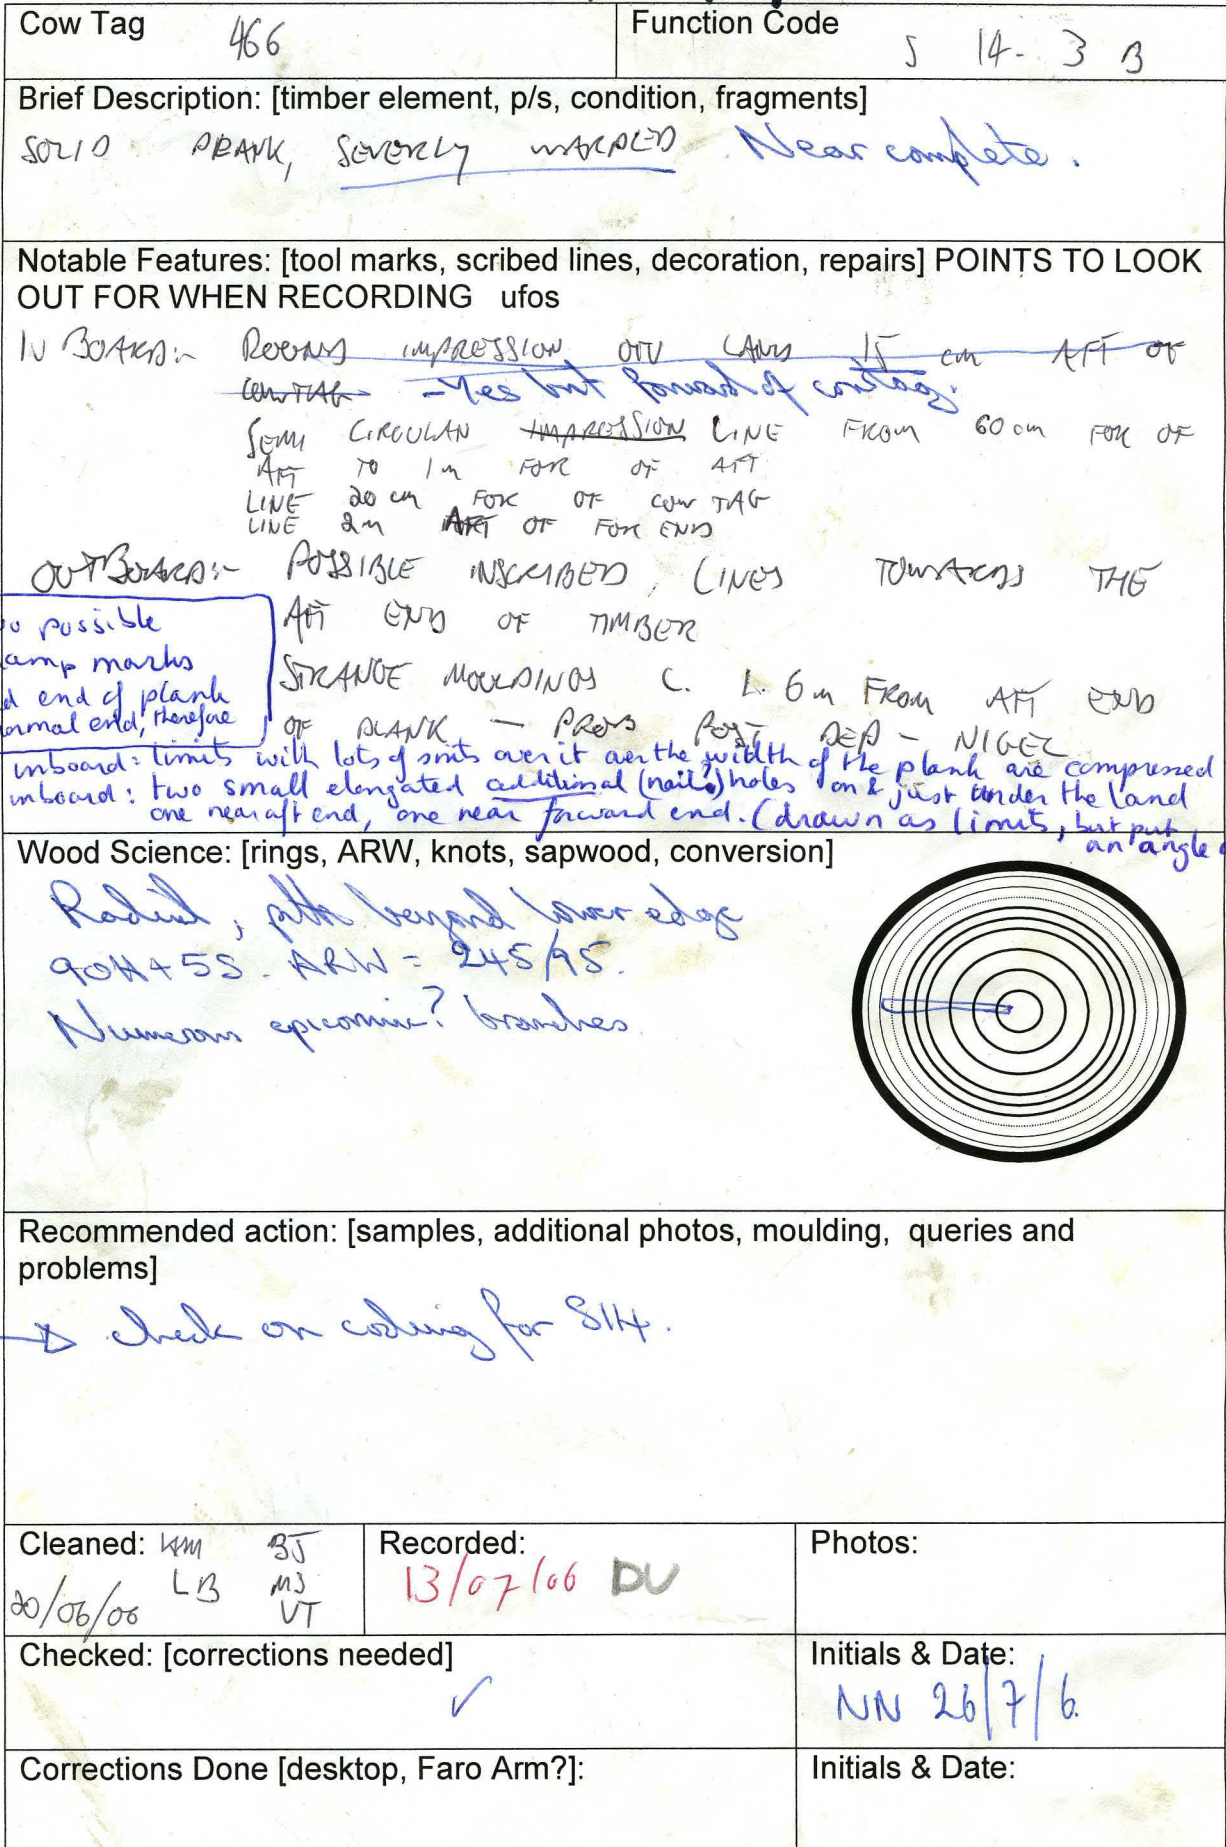 Cow Tag 466 Function Code S 14-3 B
Brief Description: [timber element, p/s, condition, fragments]
SOLID PLANK, SEVERLY WARPED. Near complete.
Notable Features: [tool marks, scribed lines, decoration, repairs] POINTS TO LOOK
OUT FOR WHEN RECORDING ufos
IN BOARD:- IMPRESSION ON LAND 15 cm AFT OF
COW TAG - Yes but forward of cowtag.
SEMI CIRCULAR IMPRESSION LINE FROM 60 cm FOR OF
AFT TO 1m FOR OF AFT
LINE 20 cm FOR OF COW TAG
LINE 2m AFT OF FOR END
OUTBOARD:- POSSIBLE INSCRIBED LINES TOWARDS THE
AFT END OF TIMBER
STRANGE MOULDINGS C. 1.6m FROM AFT END
OF PLANK - PROB POST DEP - NIGEL
o possible
amp marks
d end of plank
ormal end, therefore
inboard: limits with lots of over it the width of the plank are compressed
inboard: two small elongated additional (nail?) holes on & just under the land
one near aft end, one near forward end. (drawn as limits, but put
an angle
Wood Science: [rings, ARW, knots, sapwood, conversion]
Radial, pith beyond lower edge
90H+5S. ARW = 245/95.
Numerous epicormic? branches
Recommended action: [samples, additional photos, moulding, queries and
problems]
→ check on coding for S14.
Cleaned: KM BJ
LB MJ
20/06/06 VT
Recorded:
13/07/06 DU
Photos:
Checked: [corrections needed]
✓
Initials & Date:
NN 26/7/6.
Corrections Done [desktop, Faro Arm?]:
Initials & Date: